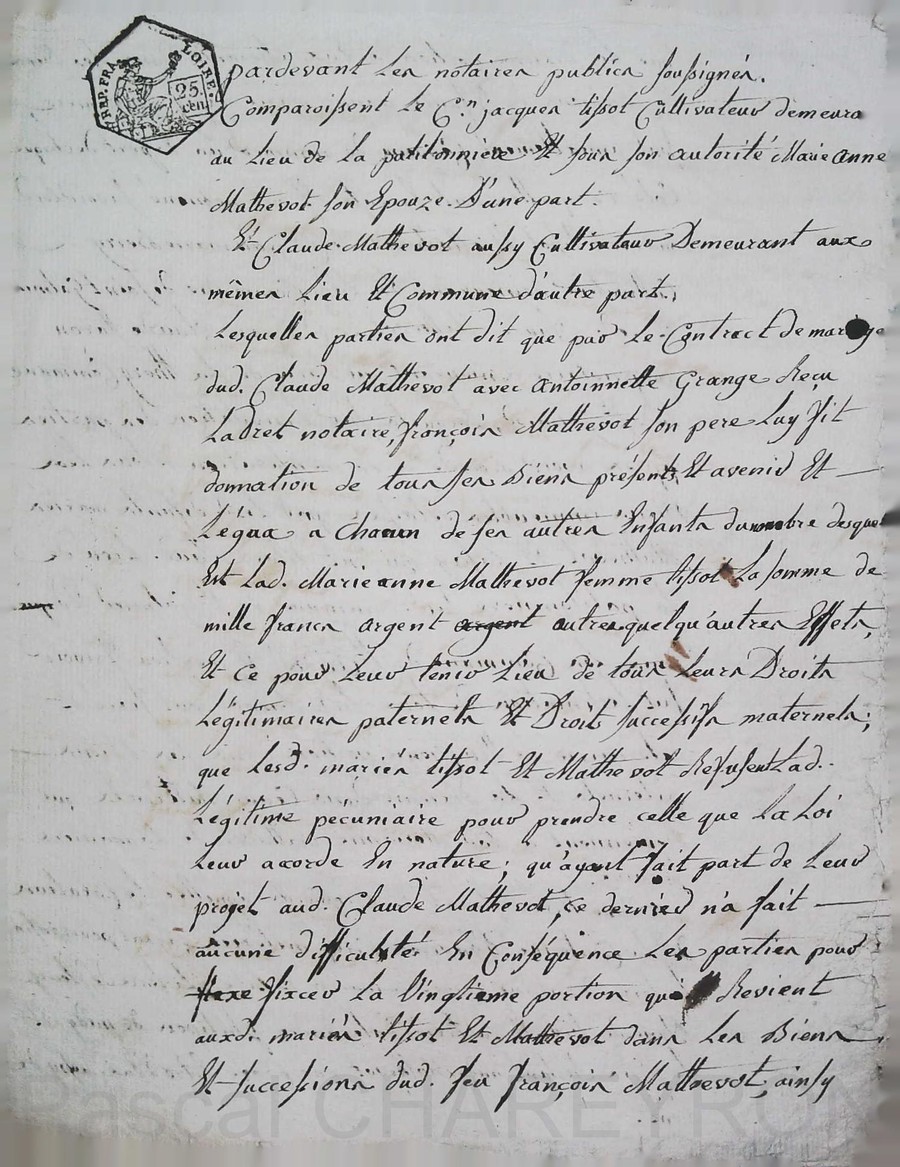 REP. FRA. LOIRE.
25. cen.
pardevant Les notaires publics soussignés.
Comparoissent Le C.en jacques tissot Cultivateur demeura
au Lieu de La Et sous son autorité Marie anne
Mathevot son Epouze. D'une part.
Et Claude Mathevot aussy Cultivateur Demeurant aux
mêmes Lieu Et Commune d'autre part,
Lesquelles parties ont dit que par Le Contract de mariage
dud. Claude Mathevot avec antoinnette Grange Reçu
Ladret notaire, françois Mathevot son pere Luy fit
donnation de tous ses Biens présents Et avenir Et —
Légua a Chacun de ses autres Enfants du nombre desquel
Est Lad. Marieanne Mathevot femme tissot La somme de
mille francs argent argent autres quelqu'autres Effets,
Et Ce pour Leur tenir Lieu de tous Leurs Droits
Légitimaires paternels Et Droits successifs maternels;
que Lesd. mariés tissot Et Mathevot Refusent Lad.
Légitime pécuniaire pour prendre celle que La Loi
Leur acorde En nature; qu'ayant fait part de Leur
projet aud. Claude Mathevot, ce dernier n'a fait —
aucune difficulté. En Conséquence Les parties pour
fixer La Vingtieme portion qui Revient
auxd. mariés tissot Et Mathevot dans Les Biens
Et successions dud. feu françois Mathevot, ainsy
Pascal CHAREYRON